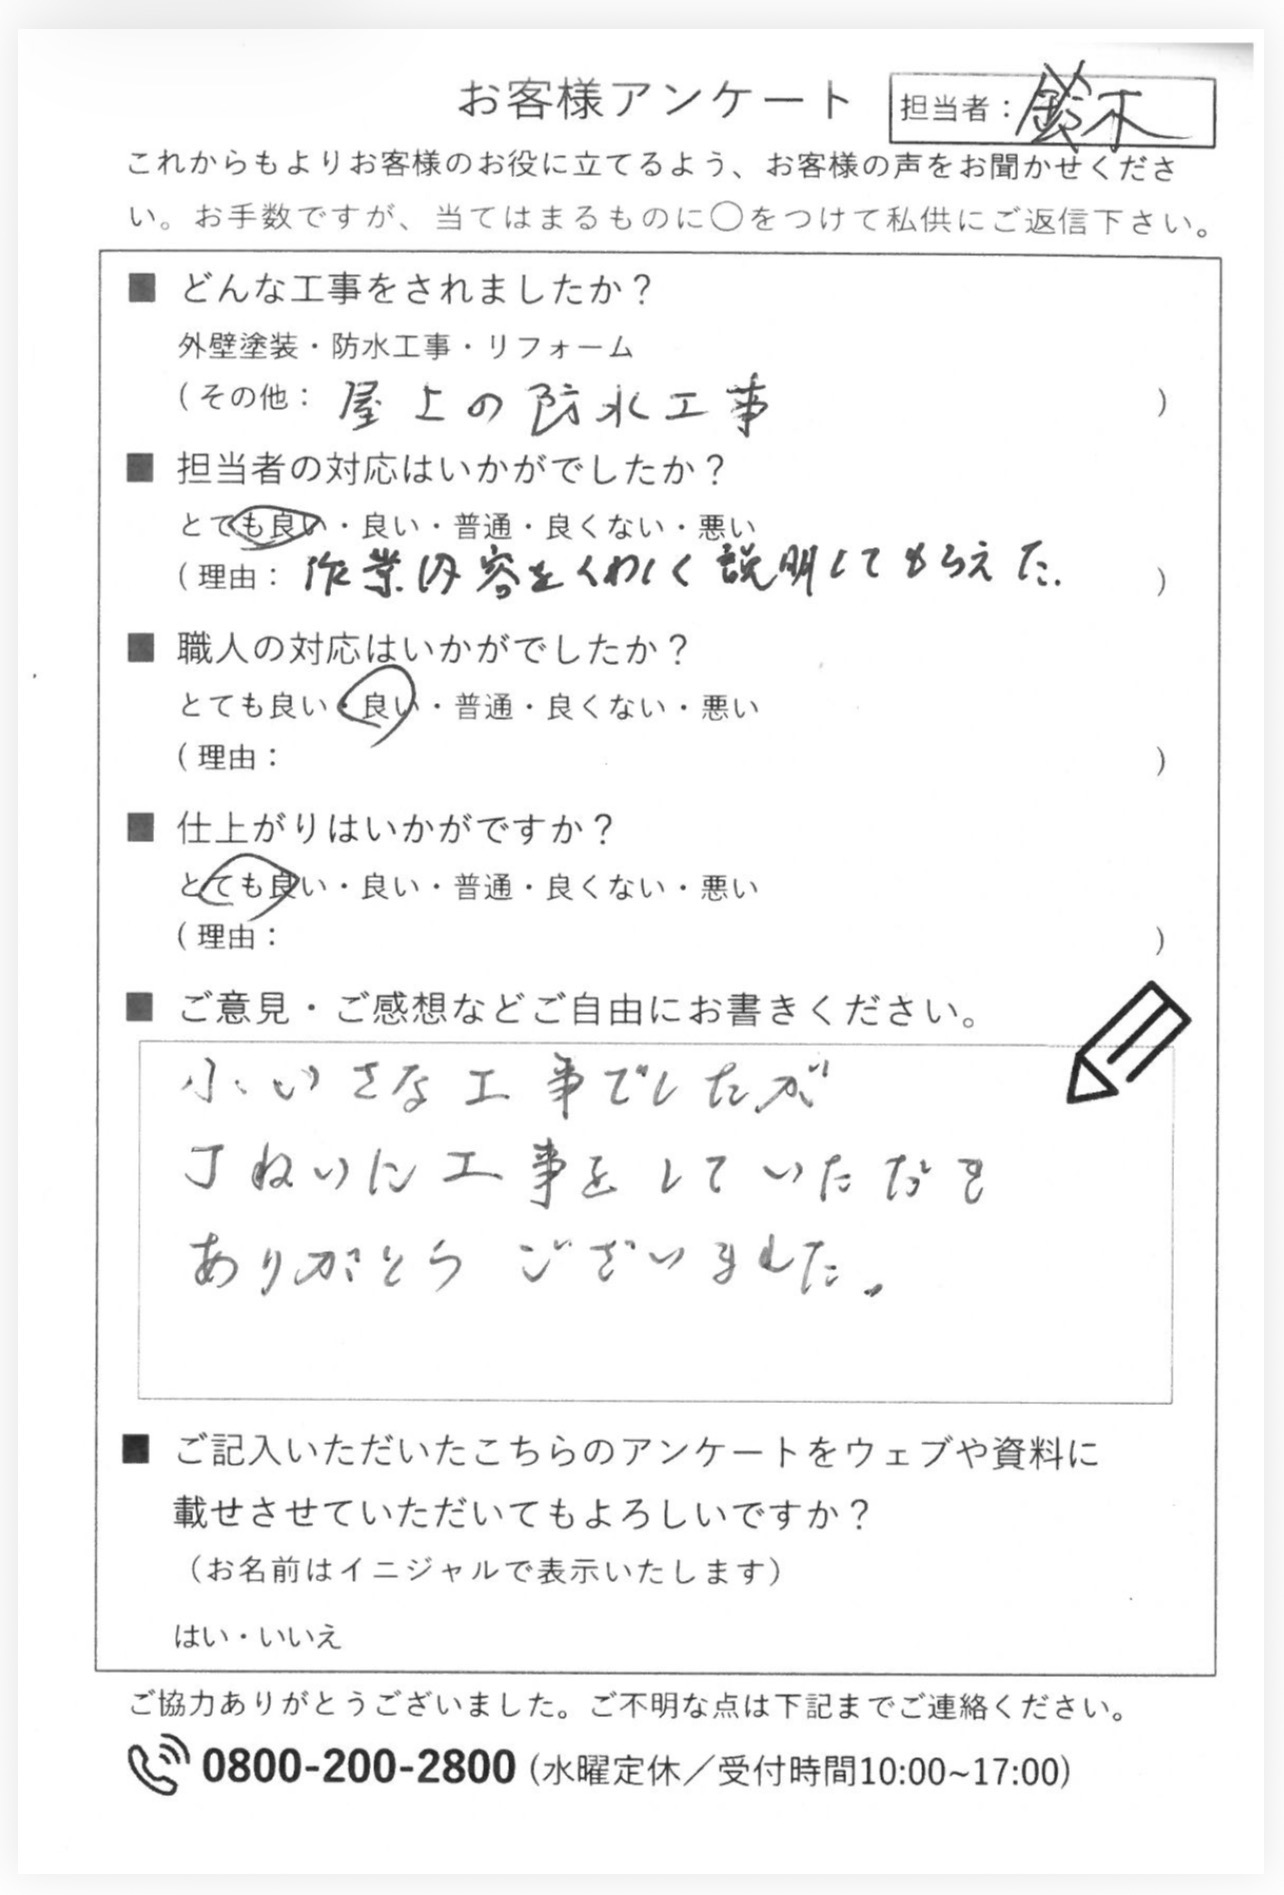 お客様アンケート
担当者：鈴木
これからもよりお客様のお役に立てるよう、お客様の声をお聞かせくださ
い。お手数ですが、当てはまるものに〇をつけて私供にご返信下さい。
■ どんな工事をされましたか？
外壁塗装・防水工事・リフォーム
（その他：屋上の防水工事）
■ 担当者の対応はいかがでしたか？
とても良い・良い・普通・良くない・悪い
（理由：作業内容をくわしく説明してもらえた.）
■ 職人の対応はいかがでしたか？
とても良い・良い・普通・良くない・悪い
（理由：）
■ 仕上がりはいかがですか？
とても良い・良い・普通・良くない・悪い
（理由：）
■ ご意見・ご感想などご自由にお書きください。
小いさな工事でしたが
丁ねいに工事をしていただき
ありがとうございました。
■ ご記入いただいたこちらのアンケートをウェブや資料に
載せさせていただいてもよろしいですか？
（お名前はイニジャルで表示いたします）
はい・いいえ
ご協力ありがとうございました。ご不明な点は下記までご連絡ください。
0800-200-2800（水曜定休／受付時間10:00~17:00）